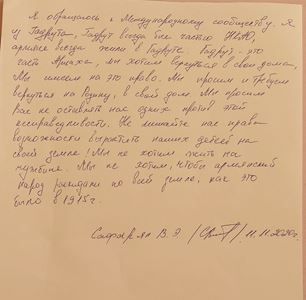 Я обращаюсь к Международному сообществу. Я
из Гадрута, Гадрут всегда был частью НКАО
армяне всегда жили в Гадруте. Гадрут - это
часть Арцаха, мы хотим вернуться в свои дома,
Мы имеем на это право. Мы просим и требуем
вернуться на Родину, в свой дом. Мы просим
Вас не оставлять нас одних против этой
несправедливости. Не лишайте нас права
возможности вырастить наших детей на
своей земле! Мы не хотим жить на
чужбине. Мы не хотим, чтобы армянский
народ раскидали по всей земле, как это
было в 1915г.
В. Э. 11.11.2020г.